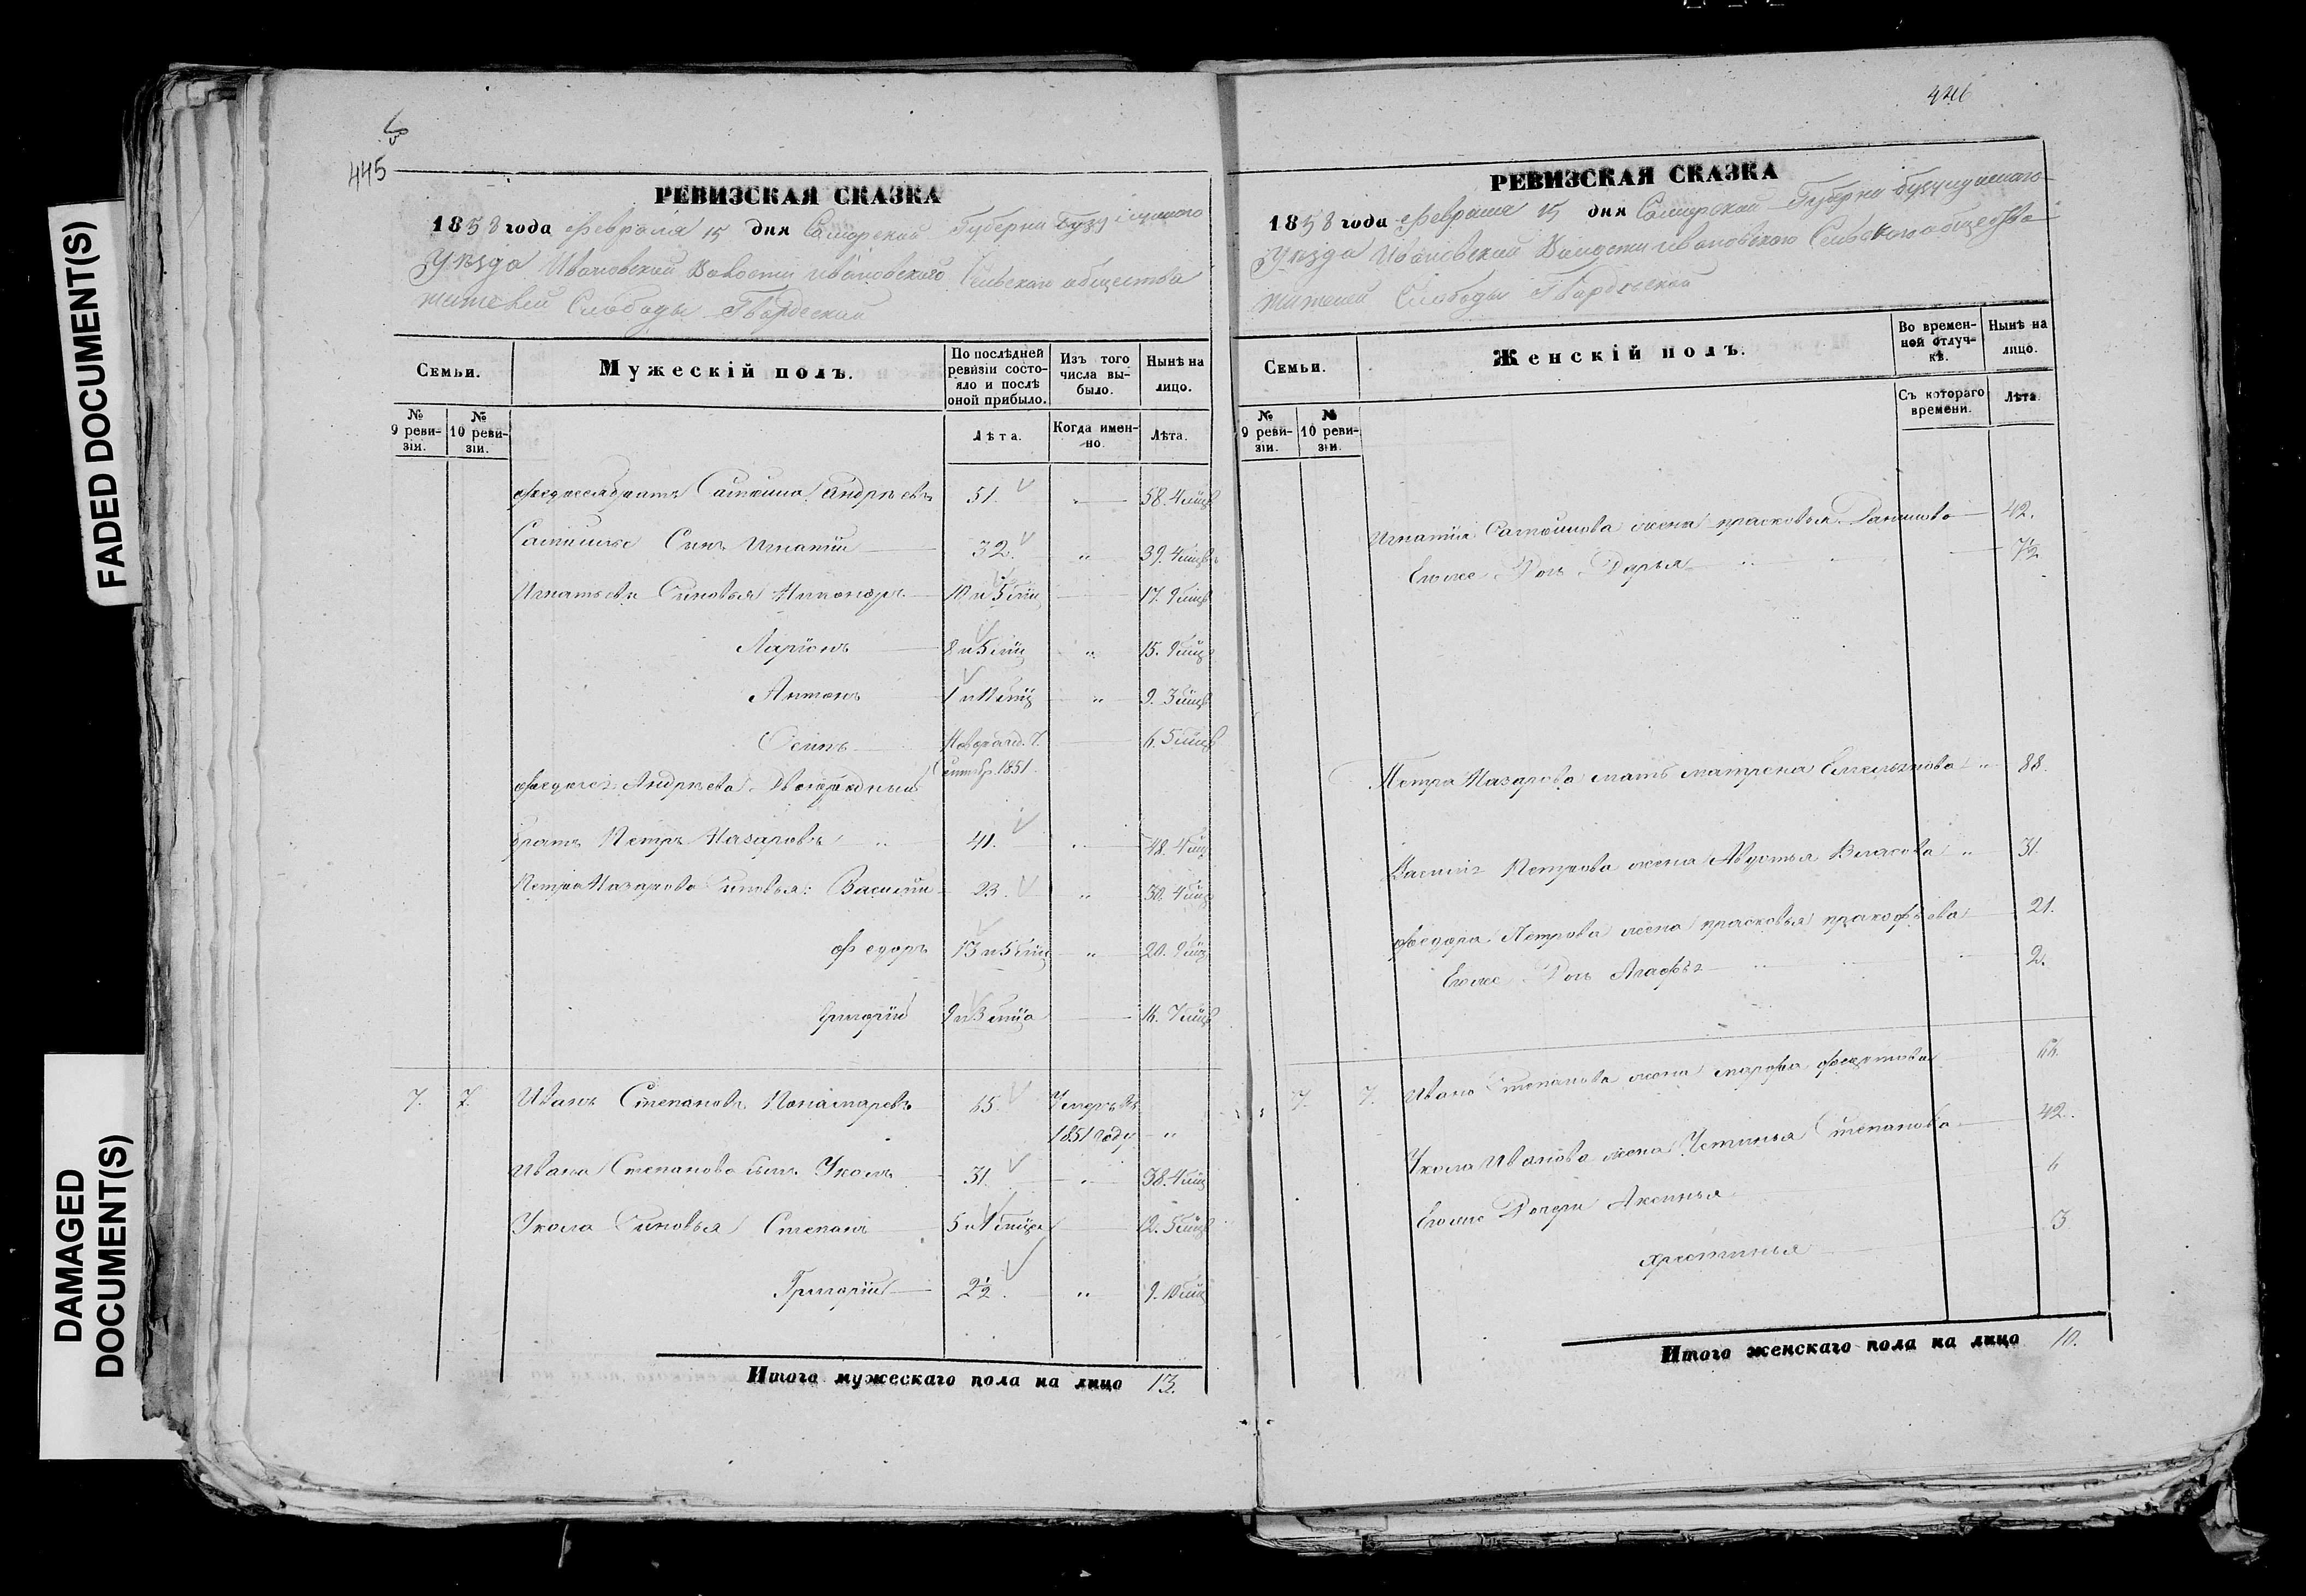 FADED DOCUMENT(S)
DAMAGED
DOCUMENT(S)
445
РЕВИЗСКАЯ СКАЗКА
1858 года Февраля 15 дня Самарской Губерни
Уѣзда Ивановской Волости Ивановского Сельского общества
жителей Слободы Гвардеской
Семьи.
Мужескій полъ.
По послѣдней ревизіи состояло и послѣ оной прибыло.
Изъ того числа выбыло.
Нынѣ на лицо.
№ 9 ревизіи.
№ 10 ревизіи.
Лѣта.
Когда именно.
Лѣта.
братъ Андреевъ 51. 58. 4
Сынъ Игнатий 32. „ 39. 4
Игнатьевы Сыновья Никоноръ 10 и 5 17. 9
Ларіонъ 8 и 5 „ 15. 9
Антонъ 1 и 11 „ 9. 3
Осипъ 6. 5
1851
Андреева Двоюродный
братъ Петръ Назаровъ „ 41. „ 48. 4
Петра Назарова Сыновья: Василий 23. „ 30. 4
Федоръ 13 и 5 „ 20. 9
Григорий 9 и 3 16. 7
7. 7. Иванъ Степановъ Понамаревъ 65. Умеръ въ
1851 году „
Ивана Степанова сынъ Уколъ 31. „ 38. 4
Укола Сыновья Степанъ 5 и 1 12. 5
Григорий 2½. „ 9. 10
Итого мужескаго пола на лицо 13.
446
РЕВИЗСКАЯ СКАЗКА
1858 года Февраля 15 дня Самарской Губерни Бузулуцкаго
Уѣзда Ивановской Волости Ивановского Сельского общества
жителей Слободы Гвардеской
Семьи.
Женскій полъ.
Во временной отлучкѣ.
Нынѣ на лицо.
№ 9 ревизіи.
№ 10 ревизіи.
Съ котораго времени.
Лѣта.
Игнатія жена прасковья Данилова 42.
Егоже Дочь Дарья „ „ 7½
Петра Назарова мать матрена Емельянова „ 88.
Василія Петрова жена Авдотья Власова „ 31
Федора Петрова жена прасковья прокофьева 21.
Егоже Дочь Агафья „ 2.
7. 7. Ивана Степанова жена марфа 66.
Укола Иванова жена Устинья Степанова 42.
Егоже Дочери Аксинья 6
христинья 3
Итого женскаго пола на лицо 10.